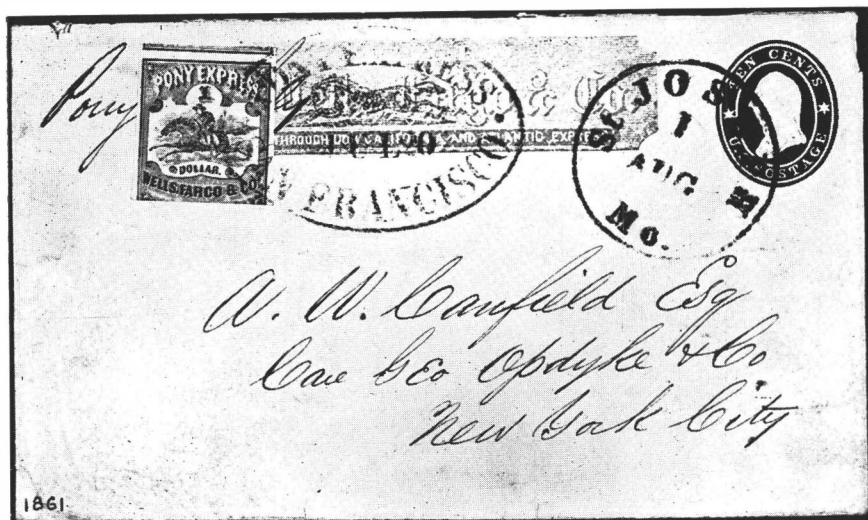 Pony
PONY EXPRESS
1
DOLLAR.
WELLS FARGO & CO.
& Co
THROUGH OUR CALIFORNIA AND ATLANTIC EXPRESS
SAN FRANCISCO.
St JOSE
1
AUG
Mo.
TEN CENTS
U.S. POSTAGE
A. W. Canfield Esq
Care Geo Opdyke & Co
New York City
1861